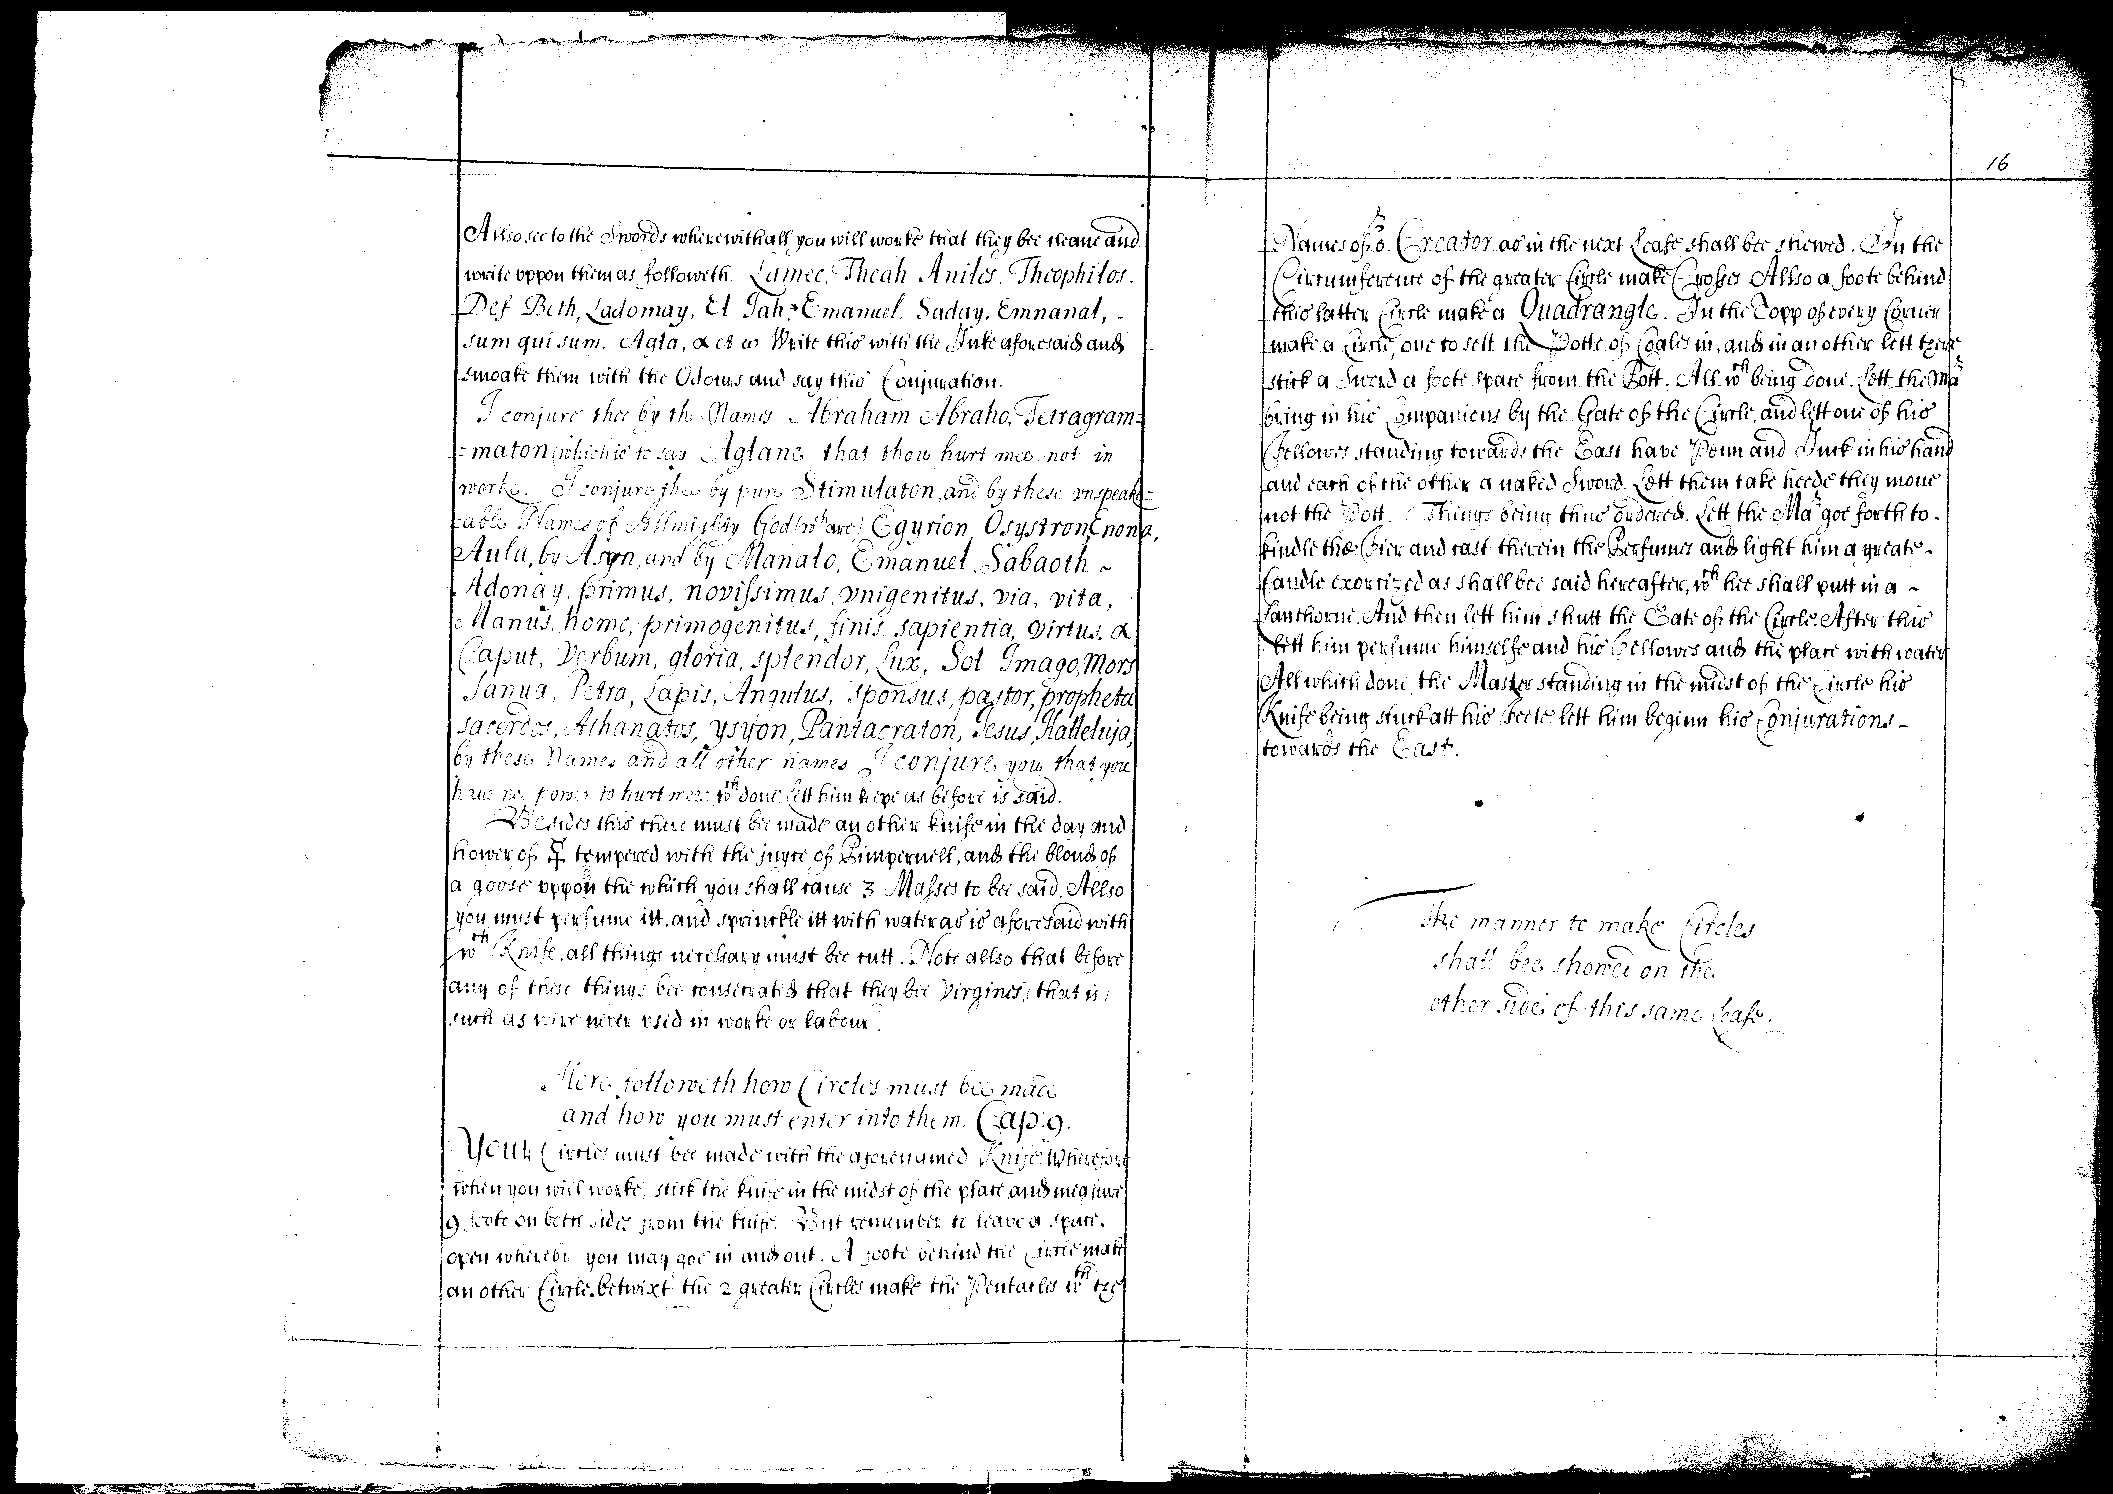 Allso see to the Swords wherewithall you will worke that they bee cleane and
write vppon them as followeth. Lamec, Theah Aniles, Theophilos.
Def Beth, Ladomay, El Jah, Emanuel, Saday, Emnanal,
sum qui sum. Agla, α et ω Write this with the Inke aforesaid and
smoake them with the Odours and say this Conjuration.
I conjure thee by the Names Abraham Abraho, Tetragram=
=maton (which is to say Aglane that thou hurt mee not in
worke. I conjure thee by pure Stimulaton, and by these vnspeake=
=able Names of Allmighty God wch are) Egyrion, Osystron, Enona,
Aula, by Asyn, and by Manato, Emanuel, Sabaoth ~
Adonay, primus, novissimus, vnigenitus, via, vita,
Manus, home, primogenitus, finis, sapientia, virtus, α
Caput, Verbum, gloria, splendor, Lux, Sol Imago, Mors
Janua, Petra, Lapis, Angulus, sponsus, pastor, propheta
sacerdos, Athanatos, ysyon, Pantacraton, Jesus, Halleluja,
by these Names and all other names I conjure you that you
haue no power to hurt mee wch done lett him keepe as before is said.
Besides this there must bee made an other knife in the day and
hower of ☿ tempered with the juyce of Pimpernell, and the bloud of
a goose vppon the which you shall cause 3 Masses to bee said, Allso
you must perfume itt, and sprinckle itt with water as is aforesaid with
wch Knife, all things necessary must bee cutt. Note allso that before
any of these things bee consecrated that they bee Virgines, that is,
such as were never vsed in worke or labour.
Here followeth how Circles must bee made
and how you must enter into them. Cap: 9.
Your Circles must bee made with the aforenamed Knife. Wherefore
when you will worke, stick the knife in the midst of the place and measure
9 foote on both sides from the knife. But remember to leave a space
open whereby you may goe in and out. A foote behind the Circle make
an other Circle, betwixt the 2 greater Circles make the Pentacles wth the
16
Names of ye Creator as in the next Leafe shall bee shewed. In the
Circumference of the greater Circle make Crosses Allso a foote behind
this latter Circle make a Quadrangle. In the Topp of every Corner
make a Circle, one to sett the Potte of Coales in, and in an other lett there
stick a Sword a foote space from the Pott. All wch being done. Lett the Mar
bring in his Companions by the Gate of the Circle, and lett one of his
Fellowes standing towards the East have Penn and Inck in his hand
and each of the other a naked Sword. Lett them take heede they moue
not the Pott. Things being thus ordered. Lett the Mar goe forth to
kindle the Fier and cast therein the Perfumes and light him a greate
Candle exorcized as shall bee said hereafter, wch hee shall putt in a ~
Lanthorne. And then lett him shutt the Gate of the Circle. After this
lett him perfume himselfe and his Fellowes and the place with water
All which done, the Master standing in the midst of the Circle his
Knife being stuck att his Feete lett him beginn his Conjurations
towards the East.
The manner to make Circles
shall bee showed on the
other side of this same leafe.